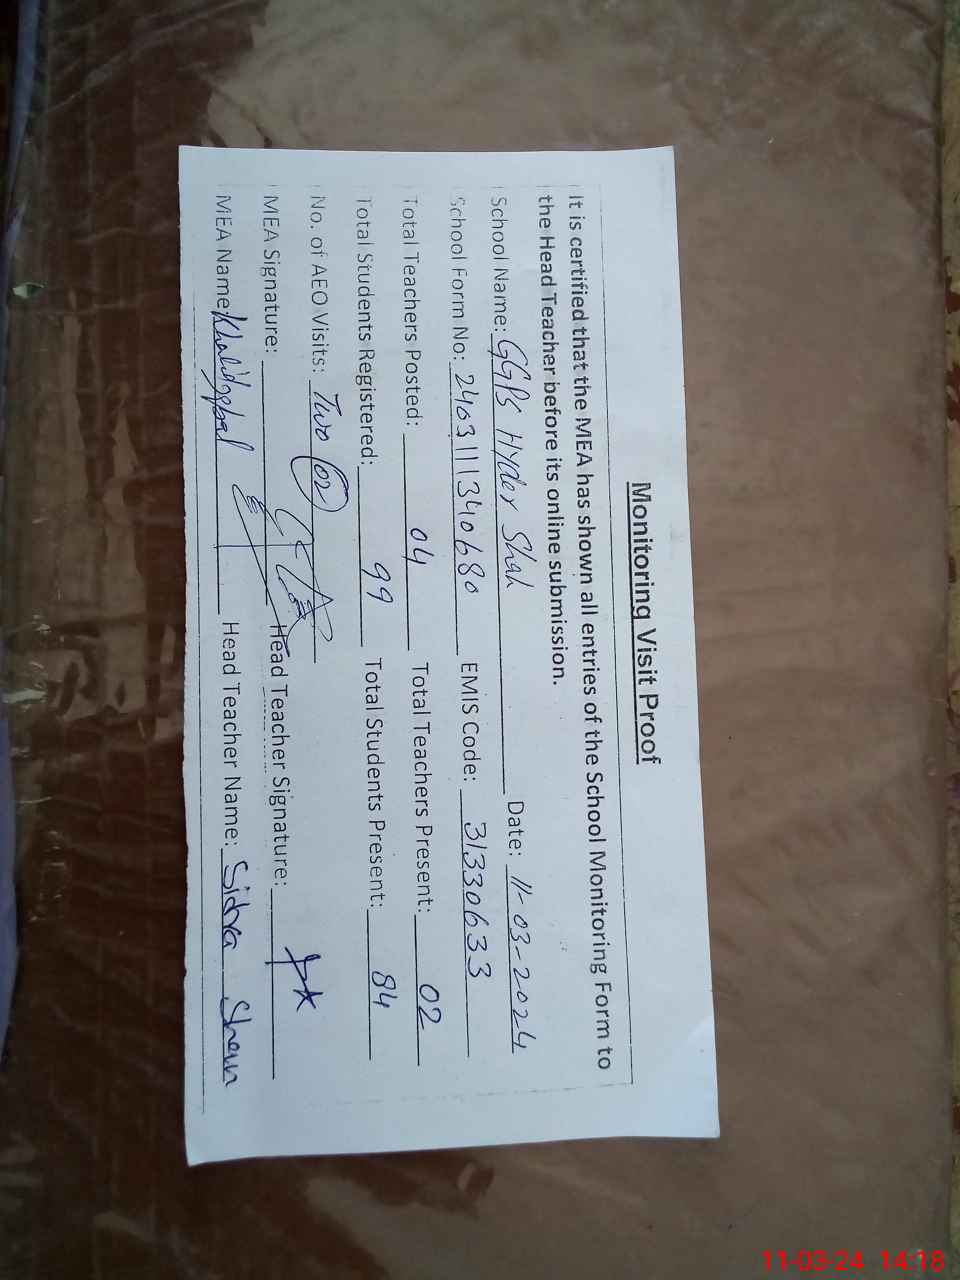 Monitoring Visit Proof
It is certified that the MEA has shown all entries of the School Monitoring Form to
the Head Teacher before its online submission.
School Name: GGPS Hyder Shah Date: 11-03-2024
School Form No: 2403111340680 EMIS Code: 31330633
Total Teachers Posted: 04 Total Teachers Present: 02
Total Students Registered: 99 Total Students Present: 84
No. of AEO Visits: Two (02)
MEA Signature: Head Teacher Signature:
MEA Name: Khalid Iqbal Head Teacher Name: Sidra
11-03-24 14:18